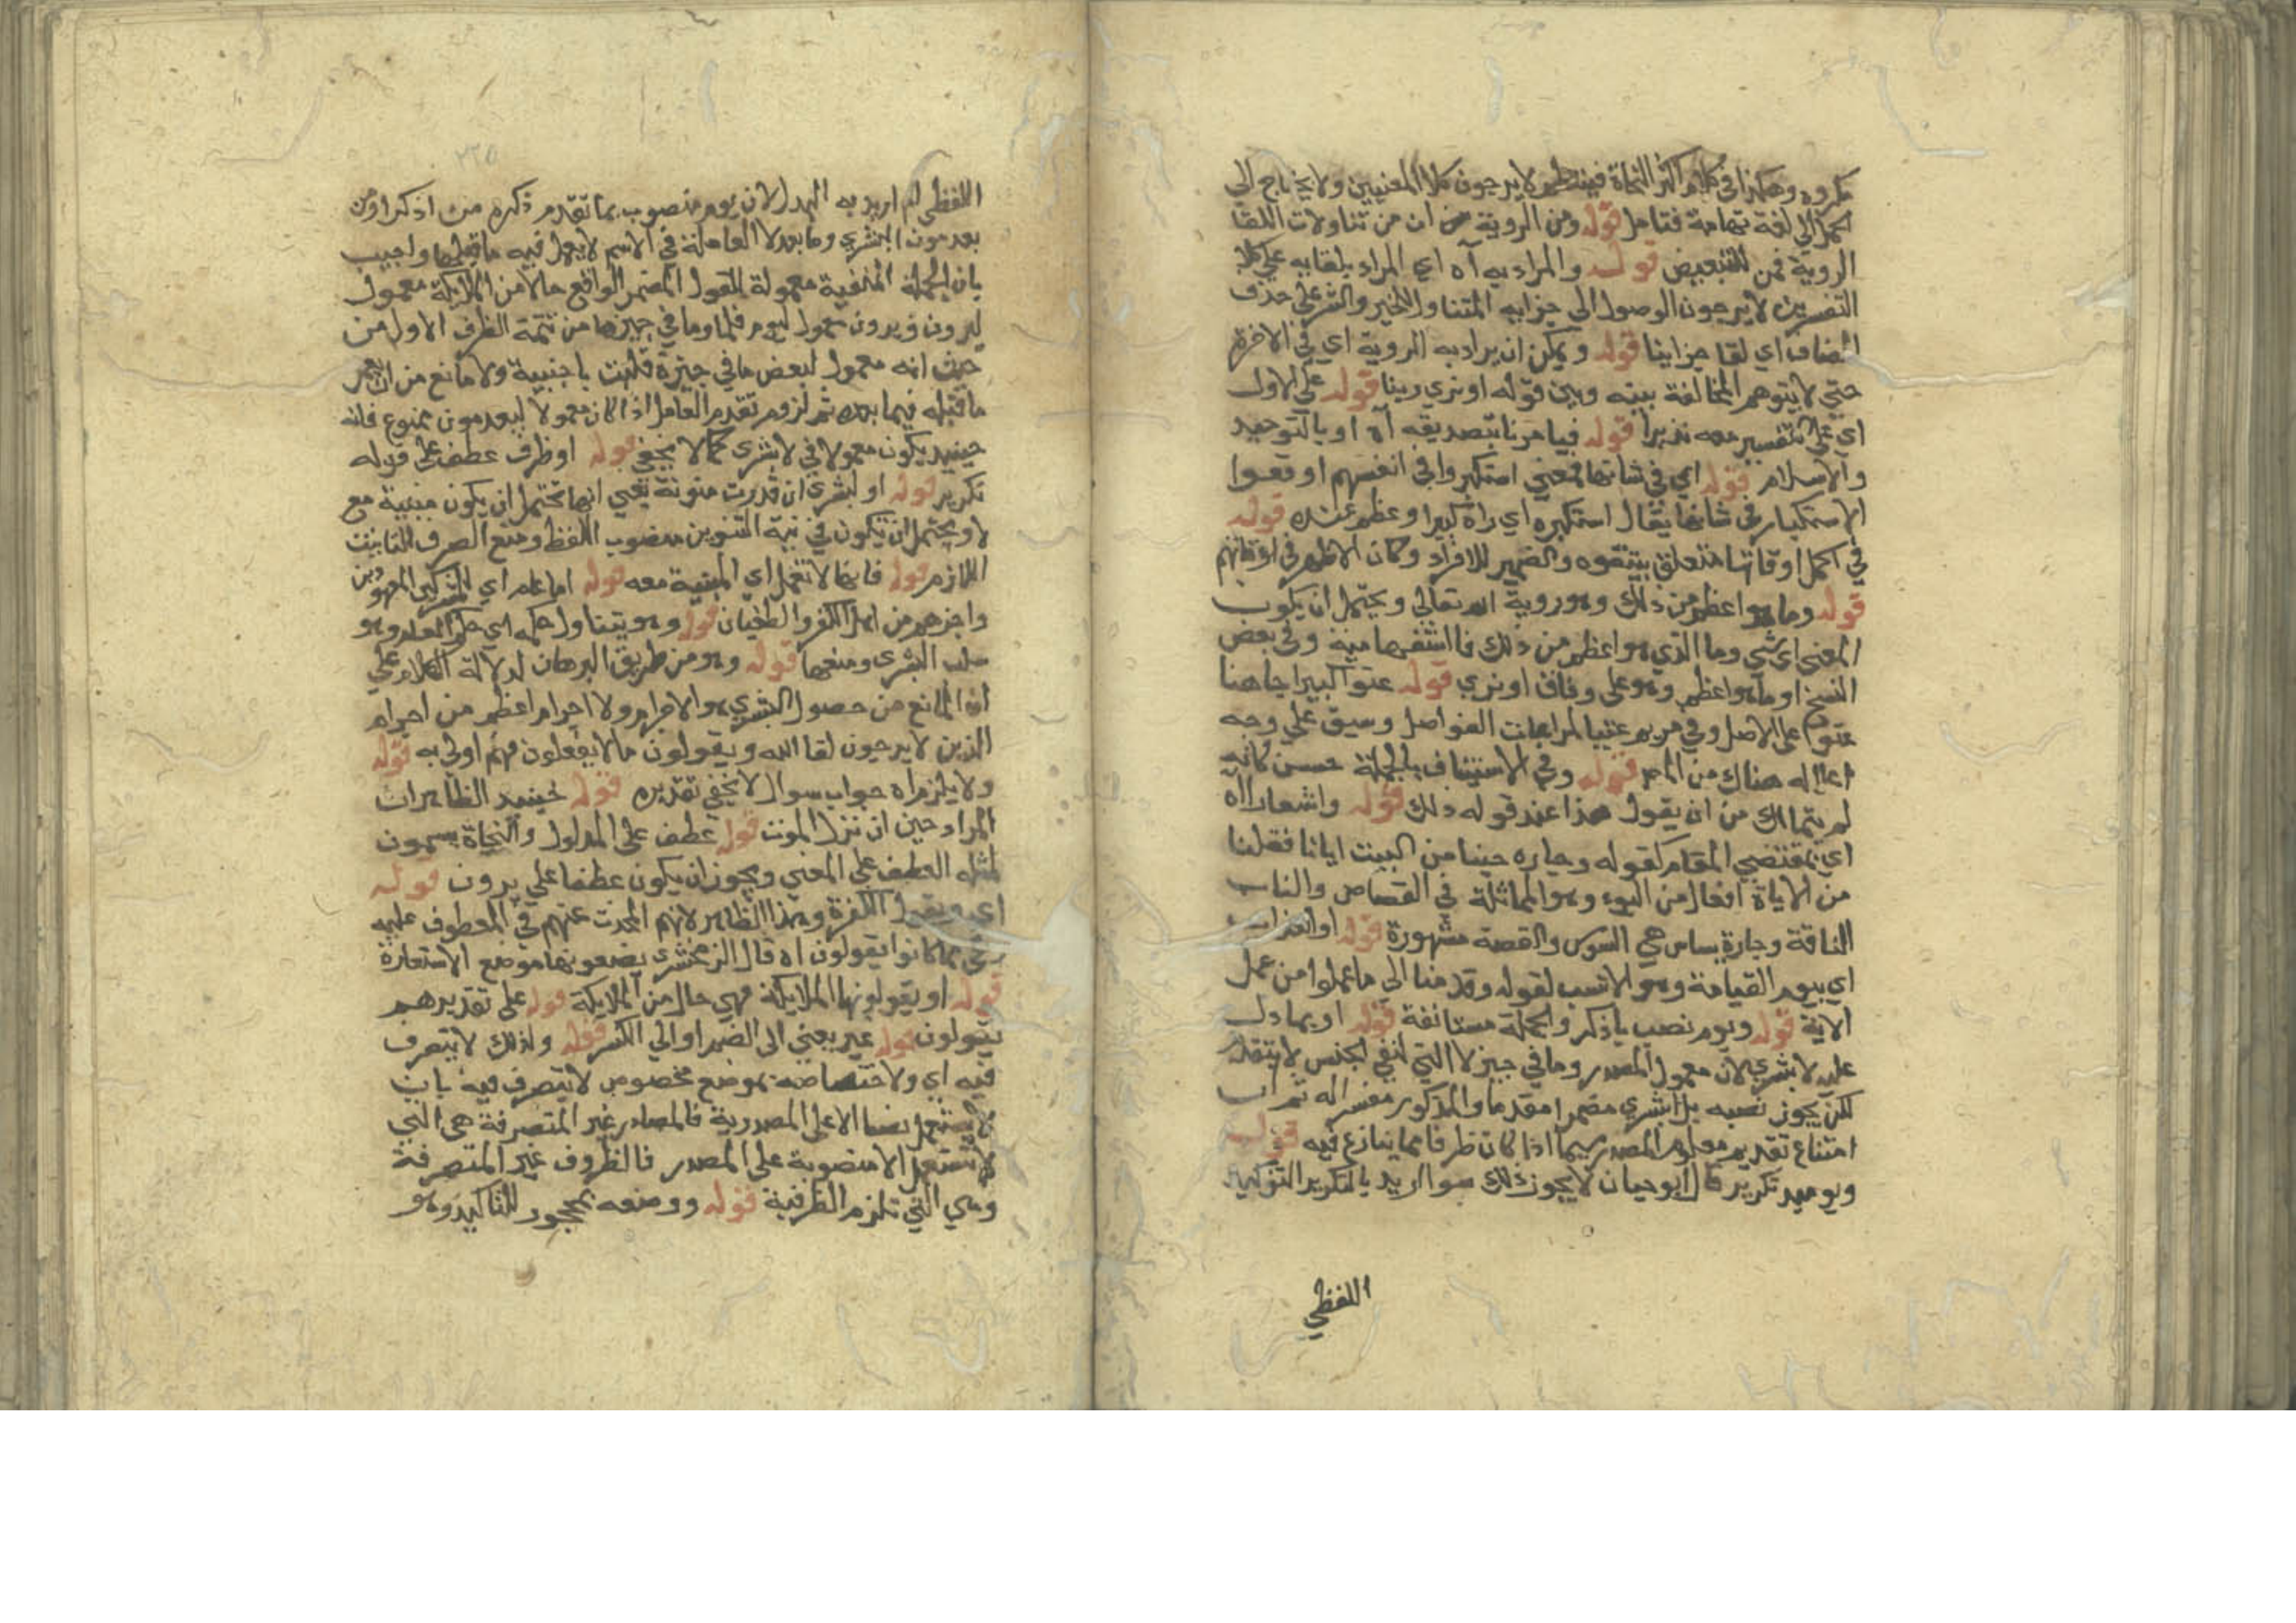 مكروه وهكذا في كلام اكثر النحاة فينتظم لا يرجون كلا المعنيين ولا يحتاج الي
الحمل الي لغة تهامة فتامل قوله ومن الروية من ان من تناولات اللقا
الروية فمن للتبعيض قوله والمراد به آه اي المراد بلقايه علي كلا
التفسيرين لا يرجون الوصول الي جزايه المتناول للخير والشر علي حذف
المضاف اي لقا جزاينا قوله ويمكن ان يراد به الروية اي في الاخرة
حتي لا يتوهم المخالفة بينه وبين قوله او نري ربنا قوله علي الاول
اي علي تفسير معه نذيرا قوله فيامرنا بتصديقه آه او بالتوحيد
والاسلام قوله اي في شانها فمعني استكبروا في انفسهم اوقعوا
الاستكبار في شانها يقال استكبره اي رآه كبيرا وعظم عنده قوله
في اكمل اوقاتها متعلق بيتفوه والضمير للافراد وكان الاظهر في اوقاتهم
قوله وما هو اعظم من ذلك وهو روية الله تعالي ويحتمل ان يكون
المعني اي شي وما الذي هو اعظم من ذلك فالاستفهامية وفي بعض
النسخ او ما هو اعظم وهو علي وفاق او نري قوله عتوا كبيرا جا هنا
عتوا علي الاصل وفي مريم عتيا لمراعات الفواصل وسيق علي وجه
اعلاله هناك من المر قوله وفي الاستيناف بالجملة حسن كانه
لم يتمالك من ان يقول هذا عند قوله ذلك قوله واشعار اآه
اي بمقتضي المقام كقوله وجاره جساس ابانا فقلنا
من الاباة افعال من البوء وهو المماثلة في القصاص والناب
الناقة وجارة بساس هي البسوس والقصة مشهورة قوله او العذاب
اي بيوم القيامة وهو الانسب لقوله وقدمنا الي ما عملوا من عمل
الاية قوله ويوم نصب باذكر والجملة مستانفة قوله او بما دل
عليه لا بشري لان معمول المصدر وما في حيز لا التي لنفي الجنس لا يتقدم
لكن يجوز نصبه بلا بشري مضمرا مقدما والمذكور مفسر اله ثم ان
امتناع تقديم معلوم المصدر سيما اذا كان ظرفا مما ينازع فيه قوله
ويوميد تكرير قال ابو حيان لا يجوز ذلك سوا اريد بالتكرير التوكيد
اللفظي
٢٢٥
اللفظي ام اريد به البدل لان يوم منصوب بما تقدم ذكره من اذكر او من
يعدمون البشري وما بعد لا العاملة في الاسم لا يعمل فيه ما قبلها واجيب
بان الجملة المنفية معمولة للقول المضمر الواقع حالا من الملايكة معمول
ليرون ويرون معمول ليوم فلا وما في حيزها من تتمة الظرف الاول من
حيث انه معمول لبعض ما في حيزه فليت باجنبية ولا مانع من ان يعمر
ما قبله فيما بعده ثم لزوم تقدم العامل اذا كان معمولا ليعدمون ممنوع فانه
حينيد يكون معمولا في لا بشري كما لا يخفي قوله او ظرف عطف علي قوله
تكرير قوله او لبشري ان قدرت منونة يعني انها تحتمل ان يكون مبنية مع
لا ويحتمل ان تكون في نية التنوين منصوب اللفظ ومنع الصرف للتانيث
اللازم قوله فانها لا تعمل اي المبنية معه قوله اما عام اي للمشركين المعهودين
واجزهم من اهل الكفر والطغيان قوله وهو يتناول حكمه اي حكم العام وهو
سلب البشري ومنعها قوله وهو من طريق البرهان لدلالة الكلام علي
ان المانع من حصول البشري هو الاجرام ولا اجرام اعظم من اجرام
الذين لا يرجون لقا الله ويقولون ما لا يفعلون فهم اولي به قوله
ولا يلزم اه جواب سوال لا يخفي تقديره قوله حينيد الظاهر ان
المراد حين ان نزل الموت قوله عطف علي المدلول والنحاة يسمون
مثله العطف علي المعني ويجوز ان يكون عطفا علي يرون قوله
اي ويقول الكفرة وهذا الظاهر لانهم المحدث عنهم في المعطوف عليه
وهي مما كانوا يقولون اه قال الزمخشري يضعونها موضع الاستعاذة
قوله او يقولونها الملايكة فهي حال من الملايكة قوله علي تقديرهم
يقولون قوله غير يعني الي الضم او الي الكسر قوله ولذلك لا يتصرف
فيه اي ولاختصاصه بموضع مخصوص لا يتصرف فيه بان
لا يستعمل نصبا الا علي المصدرية فالمصادر غير المتصرفة هي التي
لا تستعمل الا منصوبة علي المصدر فالظروف غير المتصرفة
وهي التي تلزم الظرفية قوله ووصفه بمحجور للتاكيد وهو